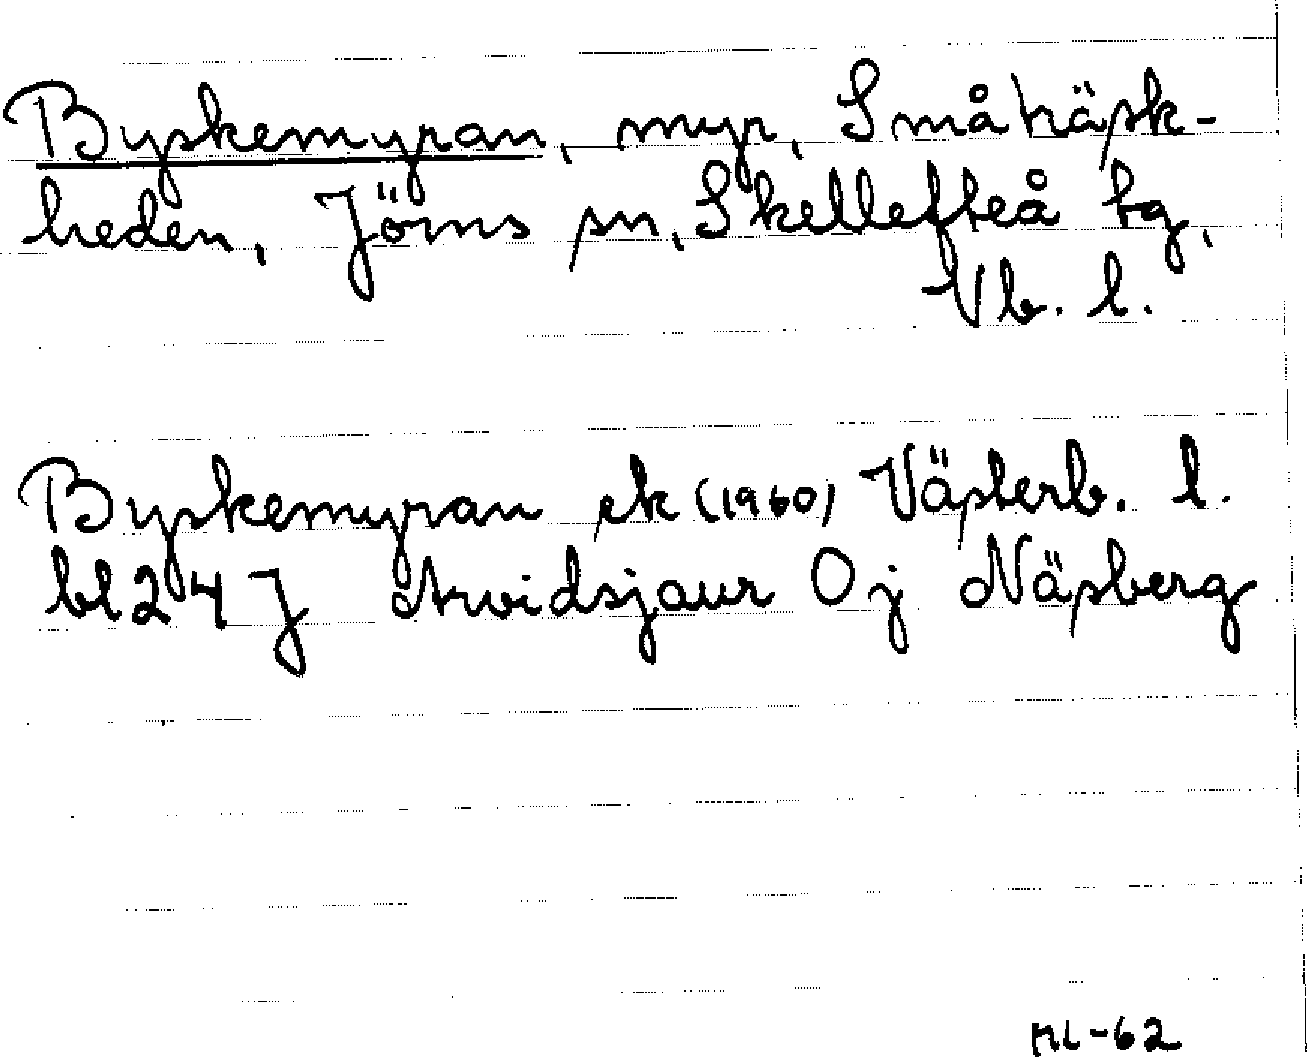 Byskemyran, myr, Småträsk-
heden, Jörns sn, Skellefteå tg,
Vb. l.
Byskemyran ek (1960) Västerb. l.
bl 24 J Arvidsjaur 0j Näsberg
ML-62